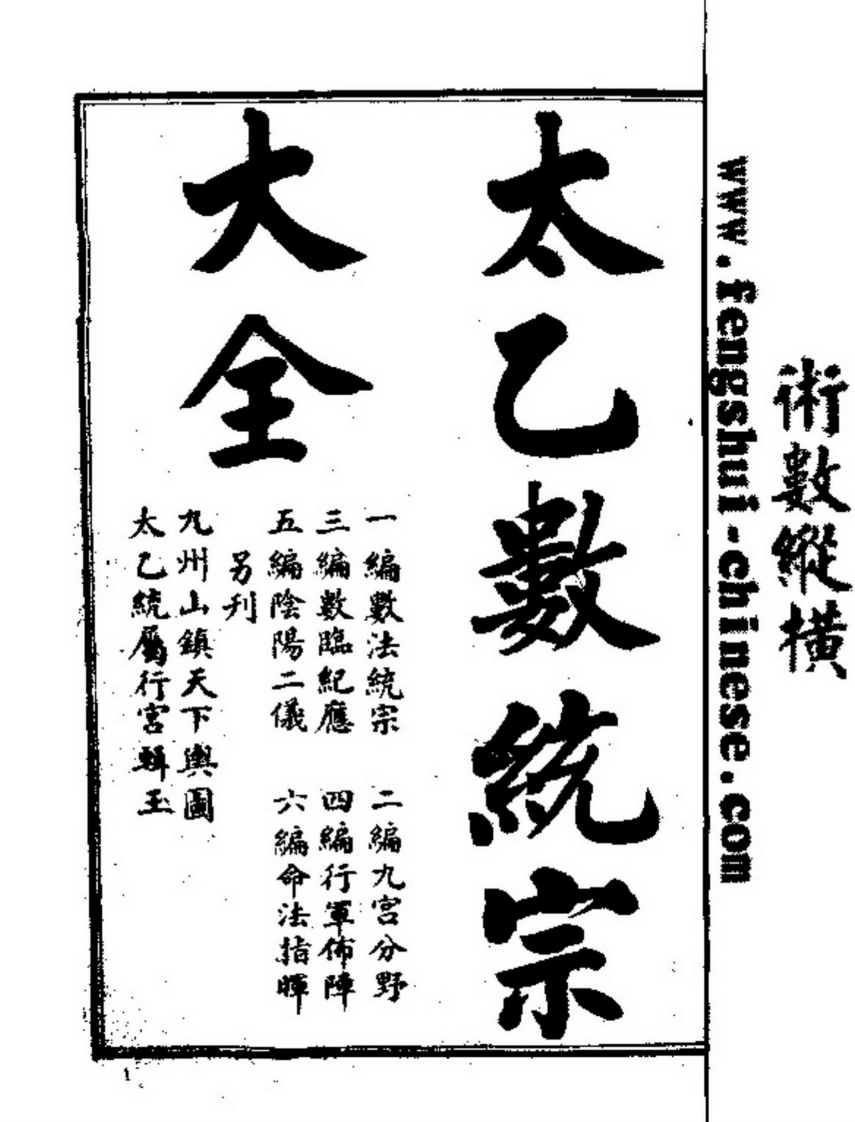 術數縱橫
www.fengshui-chinese.com
太乙數統宗
大全
一編數法統宗 二編九宮分野
三編數臨紀應 四編行軍佈陣
五編陰陽二儀 六編命法指暉
另刋
九州山鎮天下輿圖
太乙統屬行宮輯玉
1